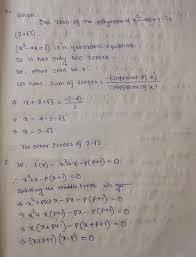 1. Given,
One zero of the polynomial x²-4x+1 is
(2+√3).
(x²-4x+1) is a quadratic equation.
So it has only two zeros
Let, other zero be x.
We have, Sum of zeros = -(coefficient of x) / (coefficient of x²)
⇒ x+2+√3 = -(-4)/1
⇒ x = 4-2-√3
⇒ x = 2-√3
The other zeros of 2-√3.
2. f(x) = x²+x-p(p+1)=0
∴ x²+x-p(p+1)=0
Splitting the middle term we get
⇒ x²+px+x-px-p(p+1)=0
⇒ x²+x(p+1)-px-p(p+1)=0
⇒ x(x+p+1)-p(x+p+1)=0
⇒ (x+p+1)(x-p)=0